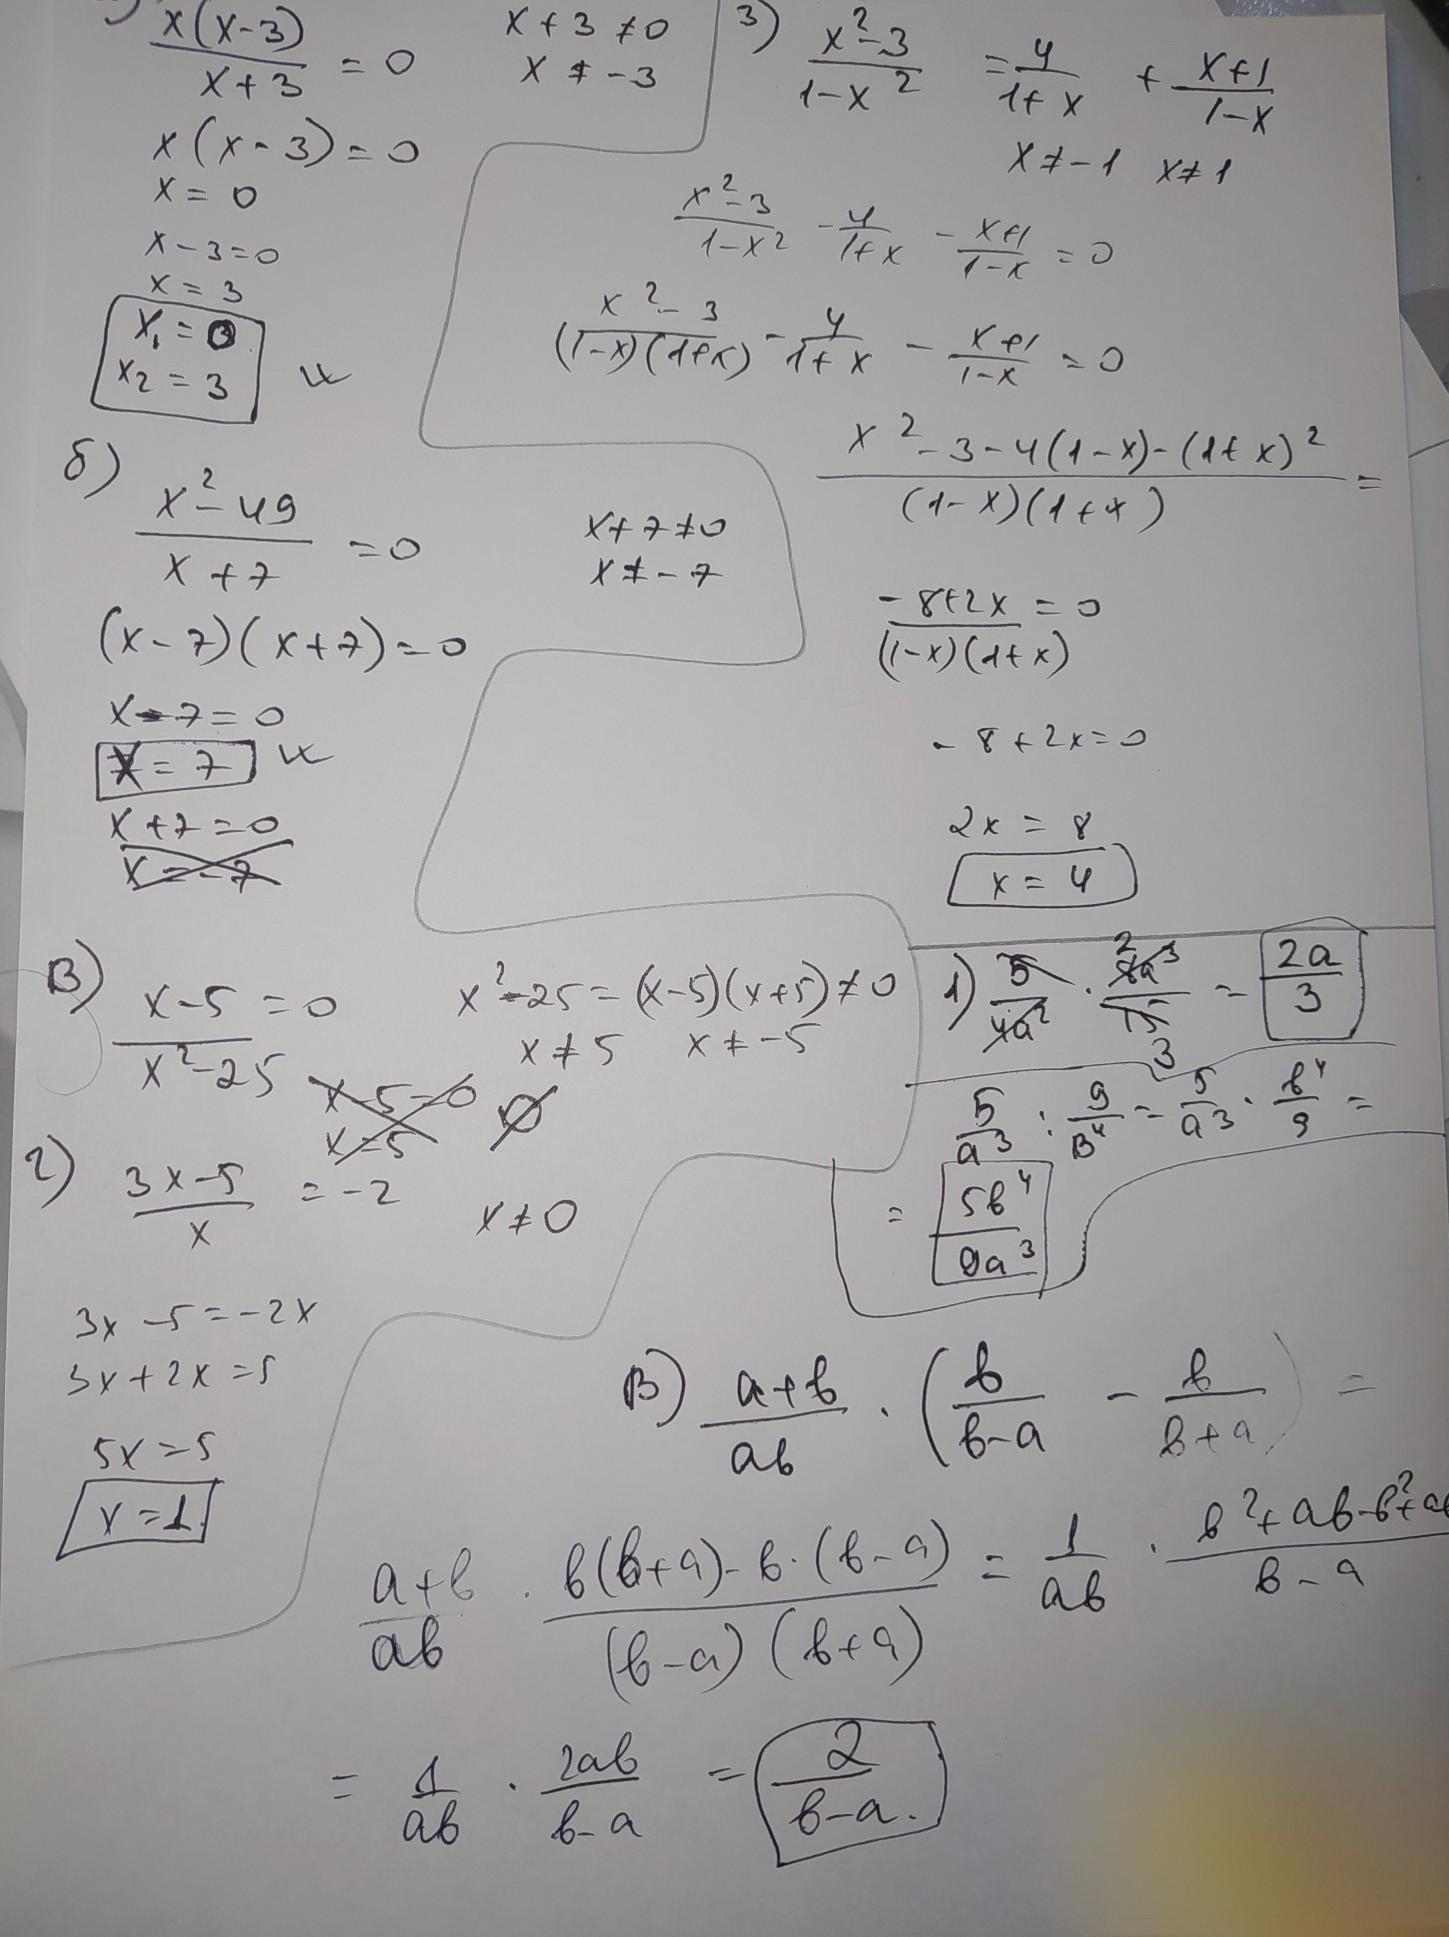 x(x-3)/(x+3) = 0
x + 3 ≠ 0
x ≠ -3
x(x-3) = 0
x = 0
x - 3 = 0
x = 3
x₁ = 0
x₂ = 3
б)
(x² - 49)/(x + 7) = 0
x + 7 ≠ 0
x ≠ -7
(x-7)(x+7) = 0
x - 7 = 0
x = 7
x + 7 = 0
x = -7
в)
(x-5)/(x²-25) = 0
x² - 25 = (x-5)(x+5) ≠ 0
x ≠ 5 x ≠ -5
x - 5 = 0
x = 5
∅
г)
(3x-5)/x = -2
x ≠ 0
3x - 5 = -2x
3x + 2x = 5
5x = 5
x = 1
3) (x²-3)/(1-x²) = 4/(1+x) + (x+1)/(1-x)
x ≠ -1 x ≠ 1
(x²-3)/(1-x²) - 4/(1+x) - (x+1)/(1-x) = 0
(x²-3)/((1-x)(1+x)) - 4/(1+x) - (x+1)/(1-x) = 0
(x² - 3 - 4(1-x) - (1+x)²)/((1-x)(1+x)) =
(-8+2x)/((1-x)(1+x)) = 0
-8 + 2x = 0
2x = 8
x = 4
1) 5/(4a²) · 8a³/15 = 2a/3
2
3
5/a³ : 9/в⁴ = 5/a³ · в⁴/9 =
= 5в⁴/9a³
в) (a+в)/(aв) · (в/(в-a) - в/(в+a)) =
(a+в)/(aв) · (в(в+a) - в·(в-a))/((в-a)(в+a)) = 1/(aв) · (в²+aв-в²+aв)/(в-a)
= 1/(aв) · 2aв/(в-a) = 2/(в-a).